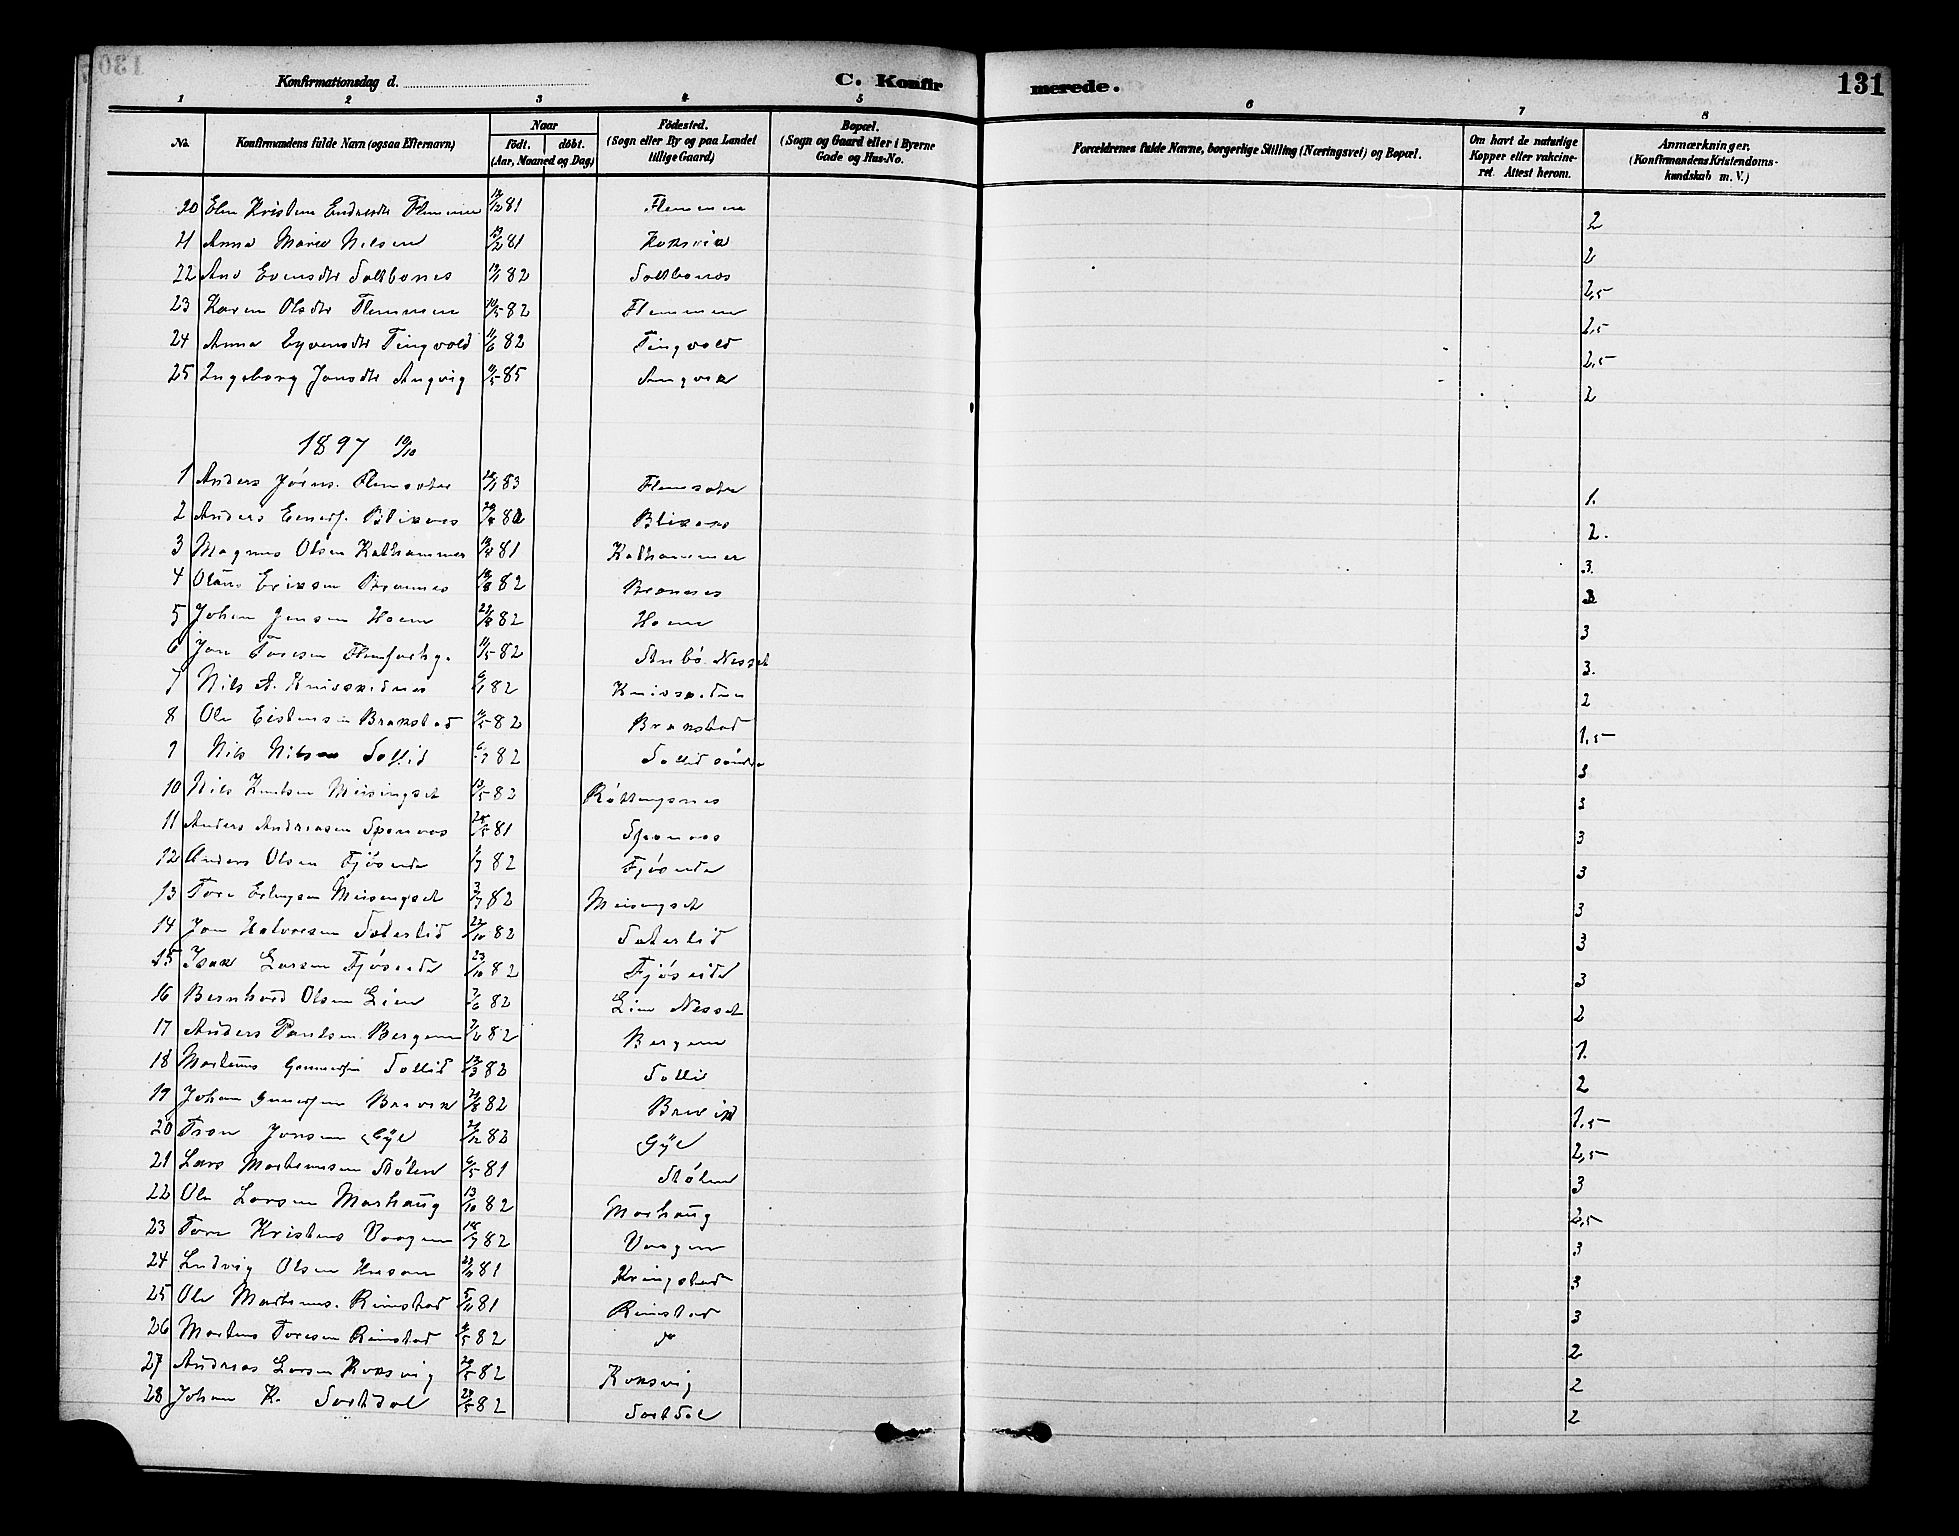 Konfirmationsdag d.
C. Konfirmerede.
131
1 2 3 4 5 6 7 8
No.
Konfirmandens fulde Navn (ogsaa Efternavn)
Naar
Født. døbt.
(Aar, Maaned og Dag)
Fødested.
(Sogn eller By og paa Landet
tillige Gaard)
Bopæl.
(Sogn og Gaard eller i Byerne
Gade og Hus-No.
Forældrenes fulde Navne, borgerlige Stilling (Næringsvei) og Bopæl.
Om havt de naturlige
Kopper eller vakcine-
ret. Attest herom.
Anmærkninger.
(Konfirmandens Kristendoms-
kundskab m. V.)
20 Elen Kristine Endresdtr Flemmen 81 Flemmen 2
21 Anna Marie Nilsen 81 Koksvik 2
22 Ane Evensdtr Saltbones 82 Saltbones 2,5
23 Karen Olsdtr Flemmen 10/5 82 Flemmen 2,5
24 Anna Eyvensdtr Tingvold 11/6 82 Tingvold 2,5
25 Ingeborg Jonsdtr Angvig 85 Angvik 2
1897 10/10
1 Anders Jörns. Flemsæter 83 Flemsæter 1.
2 Anders Blikaas 82 Blikaas 2.
3 Magnus Olsen Kalhammer 81 Kalhammer 3.
4 Eriksen Brænnes 82 Brænnes
5 Johan Jensen Hoem 82 Hoem 3
6 Jon Toresen 11/5 82 Stubö Nesset 3.
7 Nils A. Knivskidnes 82 Knivskidnes 2
8 Ole Eistensen Brakstad 82 Brakstad 1,5
9 Nils Nilsen Sollid 82 Sollid söndre 3
10 Nils Knutsen Meisingset 13/5 82 Röttingsnes 3
11 Anders Andreasen Spenvaas 81 Spenvaas 3
12 Anders Olsen Fjöseide 82 Fjöseide 3
13 Tore Erlingsen Meisingset 3/7 82 Meisingset 3
14 Jon Halvorsen Sæterlid 22/10 82 Sæterlid 3
15 Isak Larsen Fjöseide 23/10 82 Fjöseide 3
16 Bernhard Olsen Lien 7/6 82 Lien Nesset 2
17 Anders Paulsen Bergem 82 Bergem 1.
18 Martinus Sollid 13/3 82 Solli 2
19 Johan Brevik 82 Brevik 1,5
20 Tron Jonsen Gÿl 82 Gÿl 2,5
21 Lars Mortensen Stölen 6/5 81 Stölen 3
22 Ole Larsen Marhaug 13/10 82 Marhaug 2,5
23 Tore Kristens Vaagen 18/7 82 Vaagen 3
24 Ludvig Olsen 81 Kringstad 3
25 Ole Rimstad 5/11 81 Rimstad 3
26 Martens Toresen Rimstad 82 do 2
27 Andreas Larsen Koksvig 82 Koksvig 2
28 Johan K. Sartdal 82 Sartdal 2